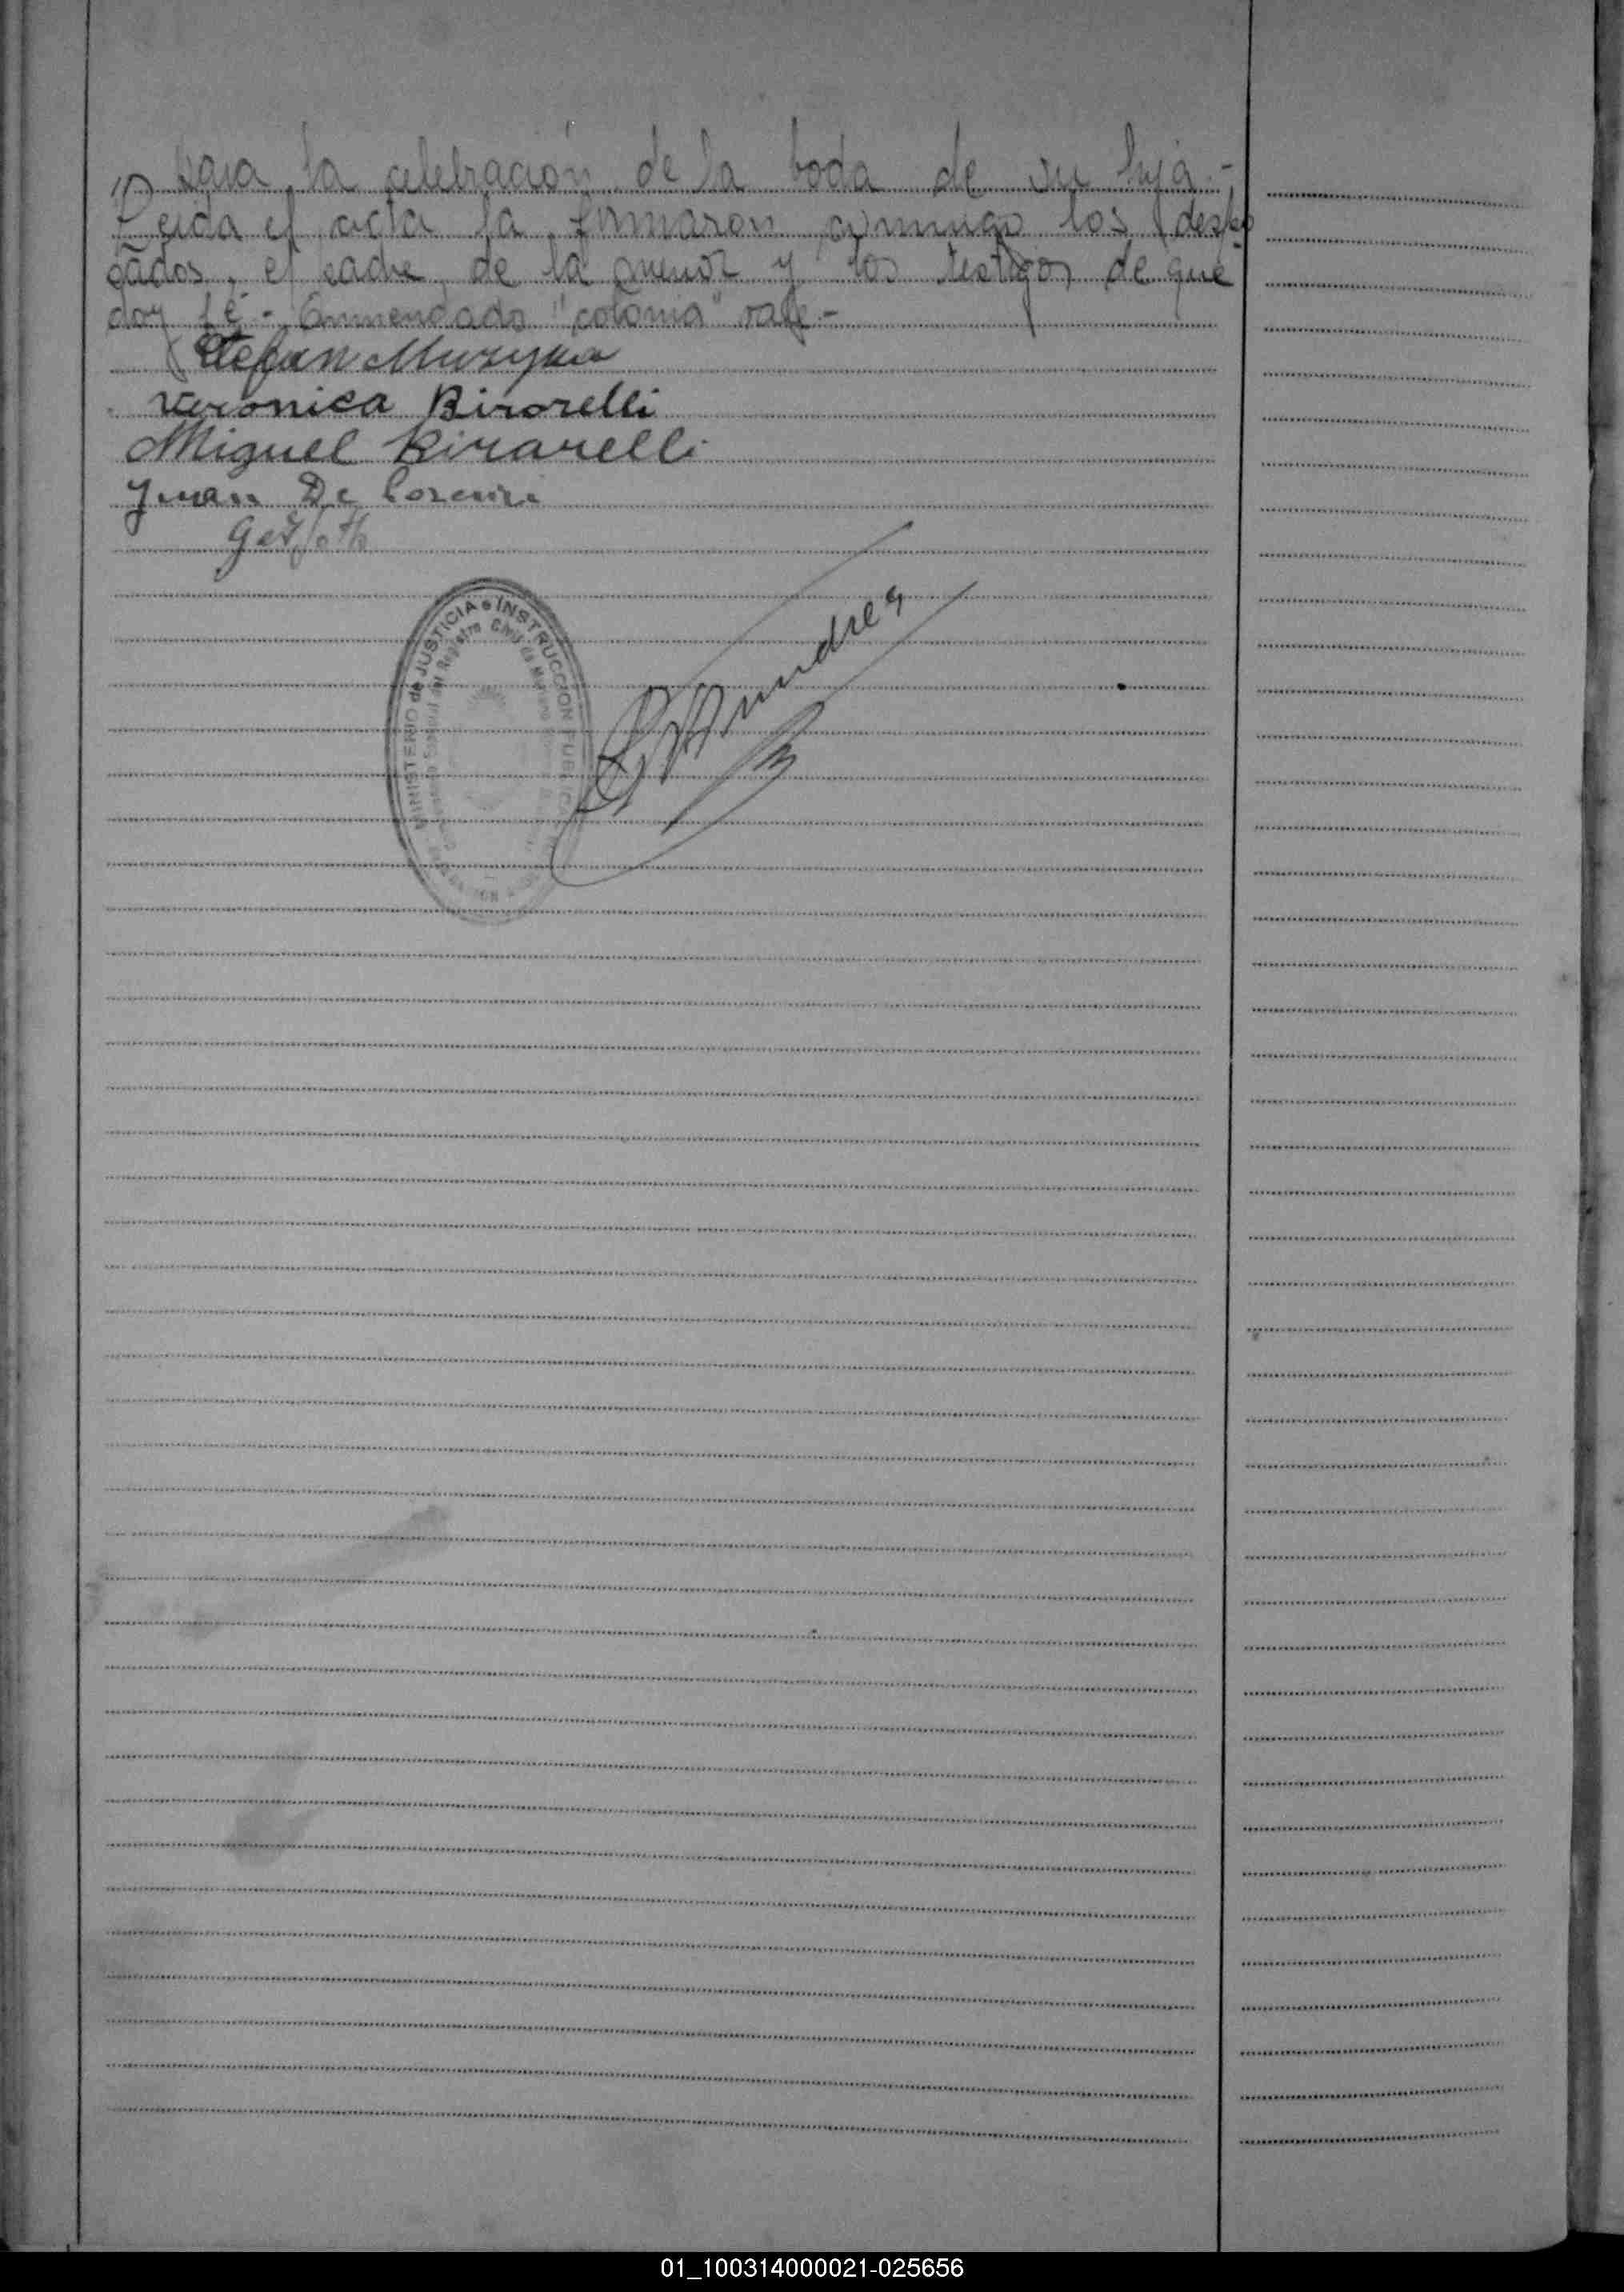 para la celebración de la boda de su hija.-
Leida el acta la firmaron conmigo los despo
sados, el padre de la menor y los testigos de que
doy fé.- Enmendado "colonia" vale.-
Stefan Muzyka
Veronica Birorelli
Miguel Birarelli
Juan De Lorenzi
MINISTERIO de JUSTICIA e INSTRUCCION PUBLICA
Registro Civil de
01_100314000021-025656